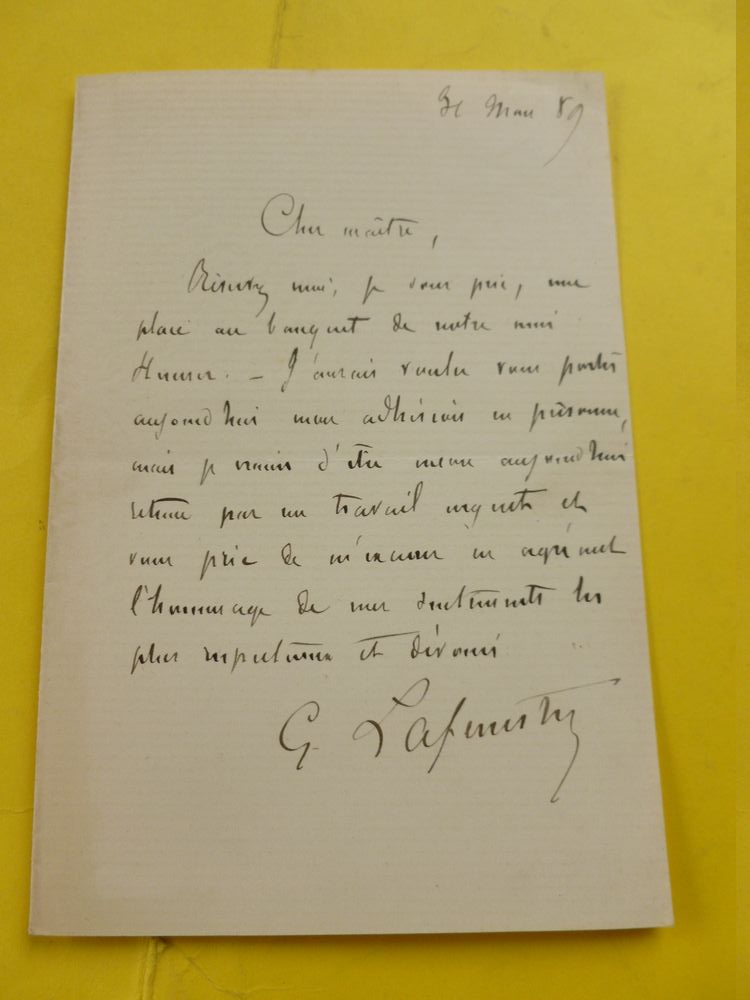 Mars 89
Cher maître,
Réservez moi, je vous prie, une
place au banquet de notre ami
J'aurais voulu vous porter
aujourd'hui mon adhésion en personne,
mais je viens d'être même aujourd'hui
retenu par un travail urgent et
vous prie de m'excuser en agréant
l'hommage de mes sentiments les
plus respectueux et dévoués
G. Lafenestre